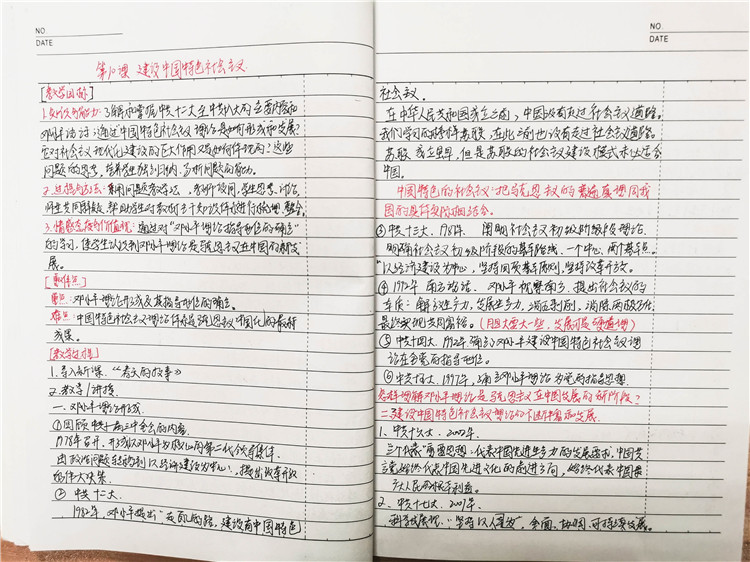 NO.
DATE
第10课 建设中国特色社会主义
[教学目标]
1.知识与能力:了解和掌握中共十二大至中共十八大的主要内容和
邓小平南方谈话;通过中国特色社会主义理论是如何形成和发展?
它对社会主义现代化建设的巨大作用又是如何体现的?这些
问题的思考,培养学生分析归纳
2.过程与方法:采用问题教学法,教师设问,学生思考、讨论,
师生共同
3.情感态度与价值观:通过对“邓小平理论指导地位的确立”
的学习,使学生认识到邓小平理论是马克思主义在中国的新发
展。
[重难点]
重点:邓小平理论形成及其指导地位的确立。
难点:中国特色社会主义理论体系是马克思主义中国化的最新
成果。
[教学过程]
1.导入新课:“春天的故事”
2.教学/讲授
一、邓小平理论形成
①回顾中共十一届三中全会的内容
1978年召开,形成以邓小平为核心的第二代领导集体
由政治问题转移到以经济建设为中心,提出改革开放
的伟大决策
② 中共十二大
1982年,邓小平提出“走自己的路,建设有中国特色
NO.
DATE
社会主义。
在中华人民共和国成立之前,中国没有走过社会主义道路。
我们学习的榜样苏联,在此之前也没有走过社会主义道路。
苏联 但是苏联的社会主义建设模式未必适合
中国。
中国特色的社会主义:把马克思主义的普遍原理同我
国的具体实际相结合。
③中共十三大,1987年, 阐明社会主义初级阶段理论
明确社会主义初级阶段的基本路线,一个中心,两个基本点。
“以经济建设为中心,坚持四项基本原则,坚持改革开放。
④1992年 南方谈话 邓小平视察南方,提出社会主义的
本质:解放生产力,发展生产力,消灭剥削,消除两极分化,
最终实现共同富裕。(胆大一些,发展才是硬道理)
⑤中共十四大,1992年,确立邓小平建设中国特色社会主义理
论在全党的指导地位。
⑥中共十五大,1997年,确立邓小平理论为党的指导思想。
怎样理解邓小平理论是马克思主义在中国发展的新阶段?
二、建设中国特色社会主义理论的不断丰富和发展
1、中共十六大,2002年,
“三个代表”重要思想:代表中国先进生产力的发展要求,中国共
产党始终代表中国先进文化的前进方向,始终代表中国最
广大人民的根本利益。
2、中共十七大,2007年
科学发展观:“坚持以人为本”,全面、协调、可持续发展。